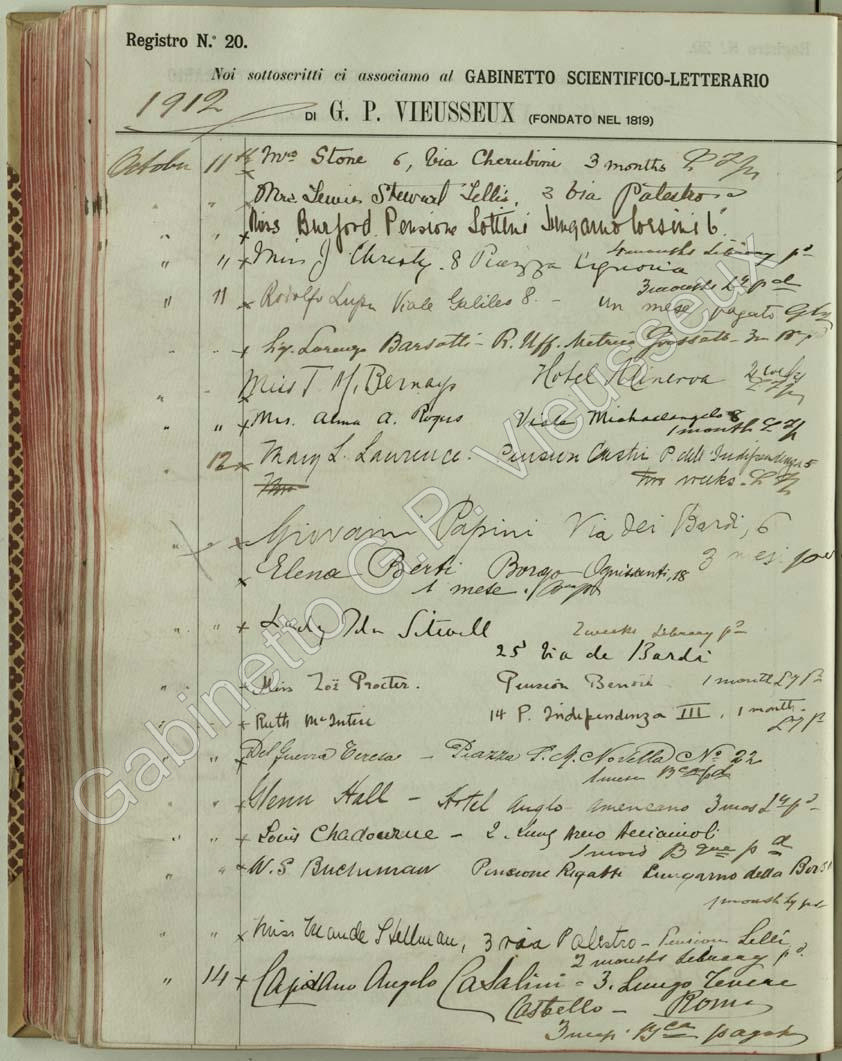 Registro N.° 20.
Noi sottoscritti ci associamo al GABINETTO SCIENTIFICO-LETTERARIO
1912
DI G. P. VIEUSSEUX (FONDATO NEL 1819)
October 11th Mrs Stone 6, Via Cherubini 3 months
" Mrs Lewis Stewart Lellis, 3 Via Palestro
" " Miss Burford. Pensione Lottini Lungarno Corsini 6
4 months Library pd
" " Miss J Christy. 8 Piazza Signoria
3 months pd
" 11 Rodolfo Viale Galileo 8. - Un mese pagato
" " Sig. Lorenzo Barsotti - R. Uff. Metrico Grosseto - 3m
" Miss T M. Bernays Hotel Minerva 2 weeks
" " Mrs. Alma A. Rogers Viale Michaelangelo 8
1 month
12 Mary L. Laurence. Pension Castri P. dell' Indipendenza 5
two weeks.
" Giovanni Papini Via dei Bardi, 6
3 mesi
Elena Berti Borgo Ognissanti, 18
1 mese.
" " Lady Ida Sitwell 2 weeks Library pd
25 Via de Bardi
" " Miss Zoë Procter. Pension Benoit 1 month
" " Ruth McIntire 14 P. Indipendenza III, 1 month
" " Del Guerra Teresa - Piazza S. M. Novella No 22
" " Glenn Hall - Hotel Anglo-americano 3 mos
" " Louis Chadourne - 2. Lung Arno Acciaiuoli
1 mois Bque pd
" " W. S. Buchanan Pensione Rigatti Lungarno della Borsa
1 month
" " Miss Maude S Hellman, 3 via Palestro - Pension Lelli
2 months Library pd
" 14 Capitano Angelo Casalini - 3. Lungo Tevere
Castello - Roma
3 mesi Bca pagato
Gabinetto G.P. Vieusseux